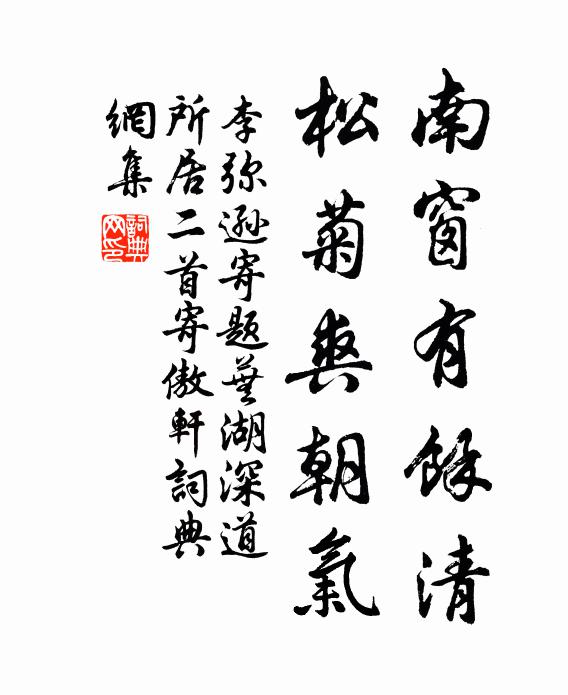 南窗有餘清
松菊爽朝氣
李弥遜寄題蕪湖深道
所居二首寄傲軒詞典
網集
詞典
网印